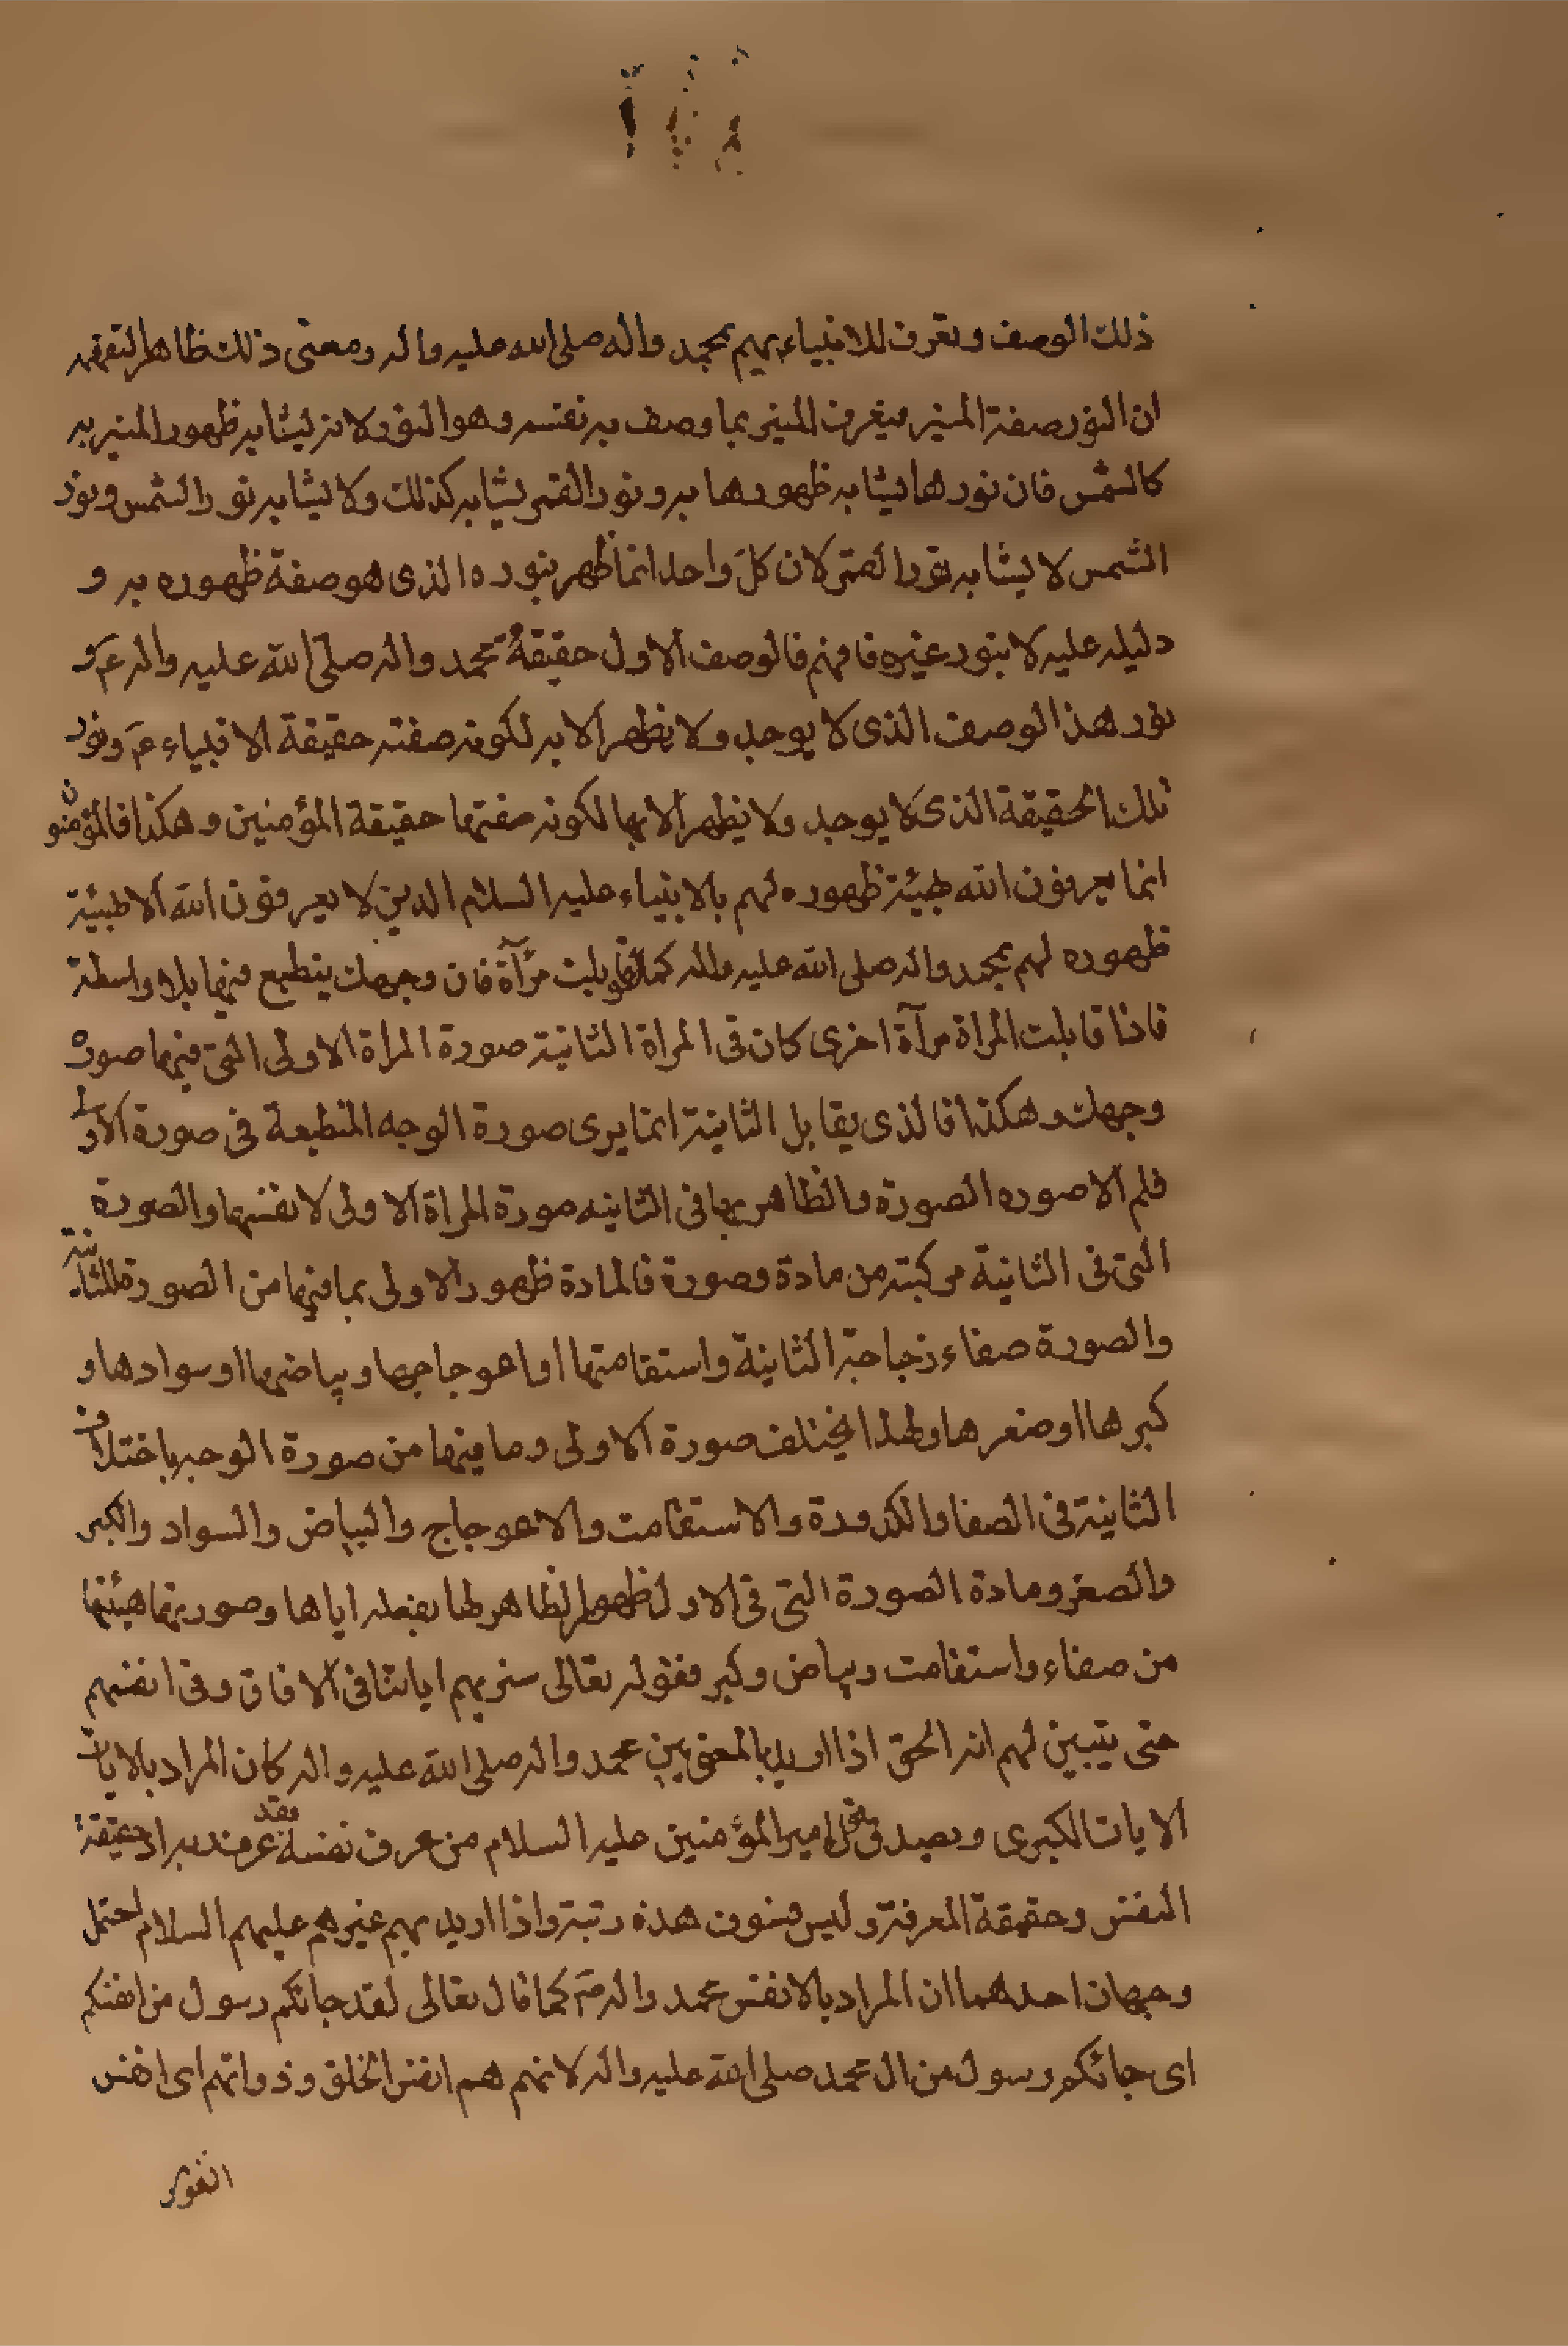 ذلك الوصف وتعرف للانبياء بهم بمحمد واله صلى الله عليه واله ومعنى ذلك ظاهرا لتفهم
ان النور صفة المنير فيعرف المنير بما وصف به نفسه وهو النور لانه يشابه ظهور المنير به
كالشمس فان نورها يشابه ظهورها به ونور القمر يشابه كذلك ولا يشابه نور الشمس ونور
الشمس لا يشابه نور القمر لان كل واحد انما ظهر بنوره الذى هو صفة ظهوره به و
دليله عليه لا بنور غيره فافهم فالوصف الاول حقيقة محمد واله صلى الله عليه واله ع و
نور هذا الوصف الذى لا يوجد ولا يظهر الا به لكونه صفته حقيقة الانبياء ع ونور
تلك الحقيقة الذى لا يوجد ولا يظهر الا بها لكونه صفتها حقيقة المؤمنين وهكذا فالمؤمنون
انما يعرفون الله بهيئة ظهوره لهم بالانبياء عليه السلام الذين لا يعرفون الله الا بهيئة
ظهوره لهم بمحمد واله صلى الله عليه واله كما لو قابلت مرآة فان وجهك ينطبع فيها بلا واسطة
فاذا قابلت المراة مرآة اخرى كان فى المراة الثانية صورة المراة الاولى التى فيها صورة
وجهك وهكذا فالذى يقابل الثانية انما يرى صورة الوجه المنطبعة فى صورة الاولى
فلم الا صوره الصورة والظاهر بها فى الثانيه صورة المراة الاولى لا نفسها والصورة
التى فى الثانية مركبة من مادة وصورة فالمادة ظهور الاولى بما فيها من الصورة للثانية
والصورة صفاء زجاجة الثانية واستقامتها او اعوجاجها وبياضها او سوادها و
كبرها او صغرها ولهذا يختلف صورة الاولى وما فيها من صورة الوجه باختلاف
الثانية فى الصفا والكدورة والاستقامت والاعوجاج والبياض والسواد والكبر
والصغر ومادة الصورة التى فى الاول ظهور الظاهر لها بفعله اياها وصورتها هيئتها
من صفاء واستقامت وبياض وكبر فقوله تعالى سنريهم اياتنا فى الافاق وفى انفسهم
حتى يتبين لهم انه الحق اذا اريد بالمعنيين محمد واله صلى الله عليه واله كان المراد بالايات
الايات الكبرى ويصدق قول امير المؤمنين عليه السلام من عرف نفسه فقد عرف ربه يراد حقيقة
النفس وحقيقة المعرفة وليس فوق هذه رتبة واذا اريد بهم غيرهم عليهم السلام احتمل
وجهان احدهما ان المراد بالانفس محمد واله ص كما قال تعالى لقد جائكم رسول من انفسكم
اى جائكم رسول من ال محمد صلى الله عليه واله لانهم هم انفس الخلق وذواتهم اى انفس